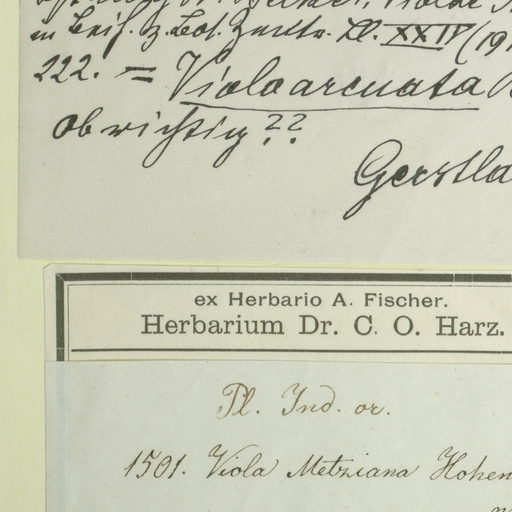 in Beih. z. Bot. Zentr. XXXIV (191
222. = Viola arcuata
Ob richtig??
Gerstla
ex Herbario A. Fischer.
Herbarium Dr. C. O. Harz.
Pl. Ind. or.
1501. Viola Metziana Hohen